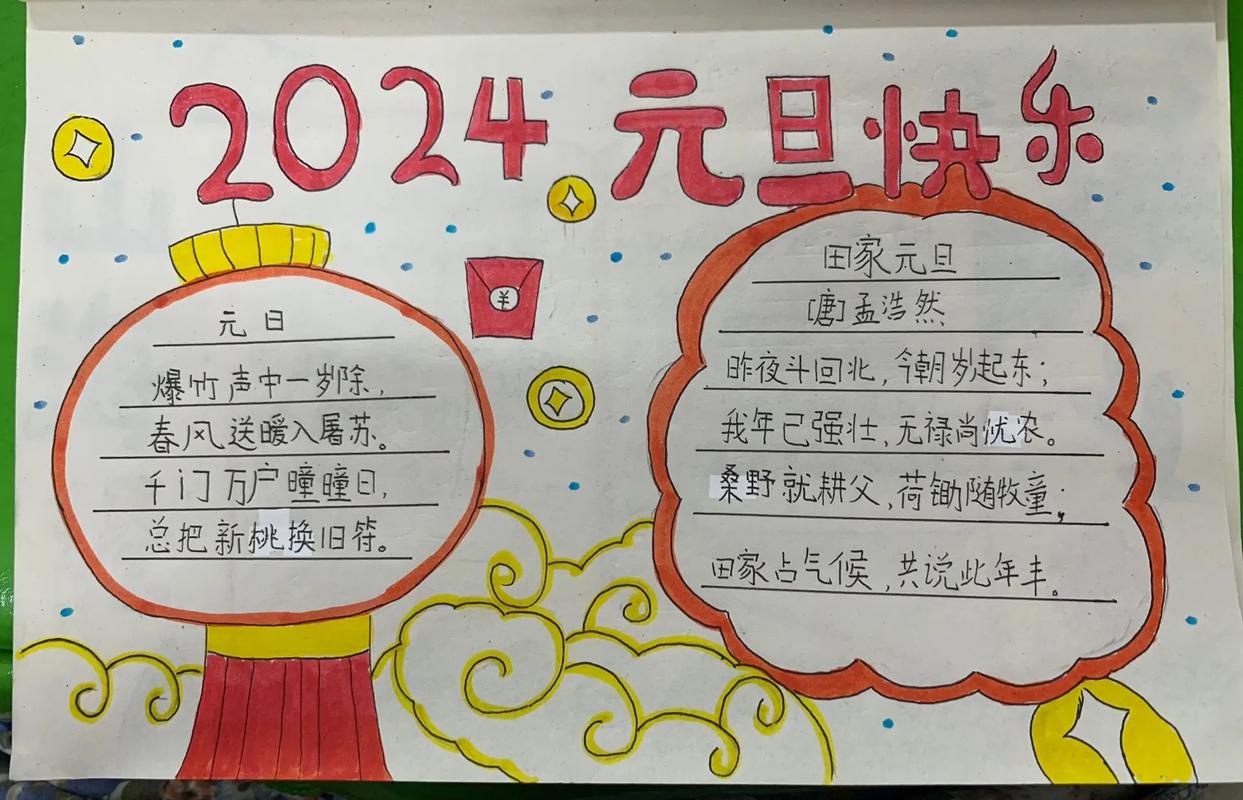 2024 元旦快乐
元日
爆竹声中一岁除,
春风送暖入屠苏。
千门万户曈曈日,
总把新桃换旧符。
¥
田家元旦
[唐]孟浩然
昨夜斗回北,今朝岁起东;
我年已强壮,无禄尚忧农。
桑野就耕父,荷锄随牧童;
田家占气候,共说此年丰。